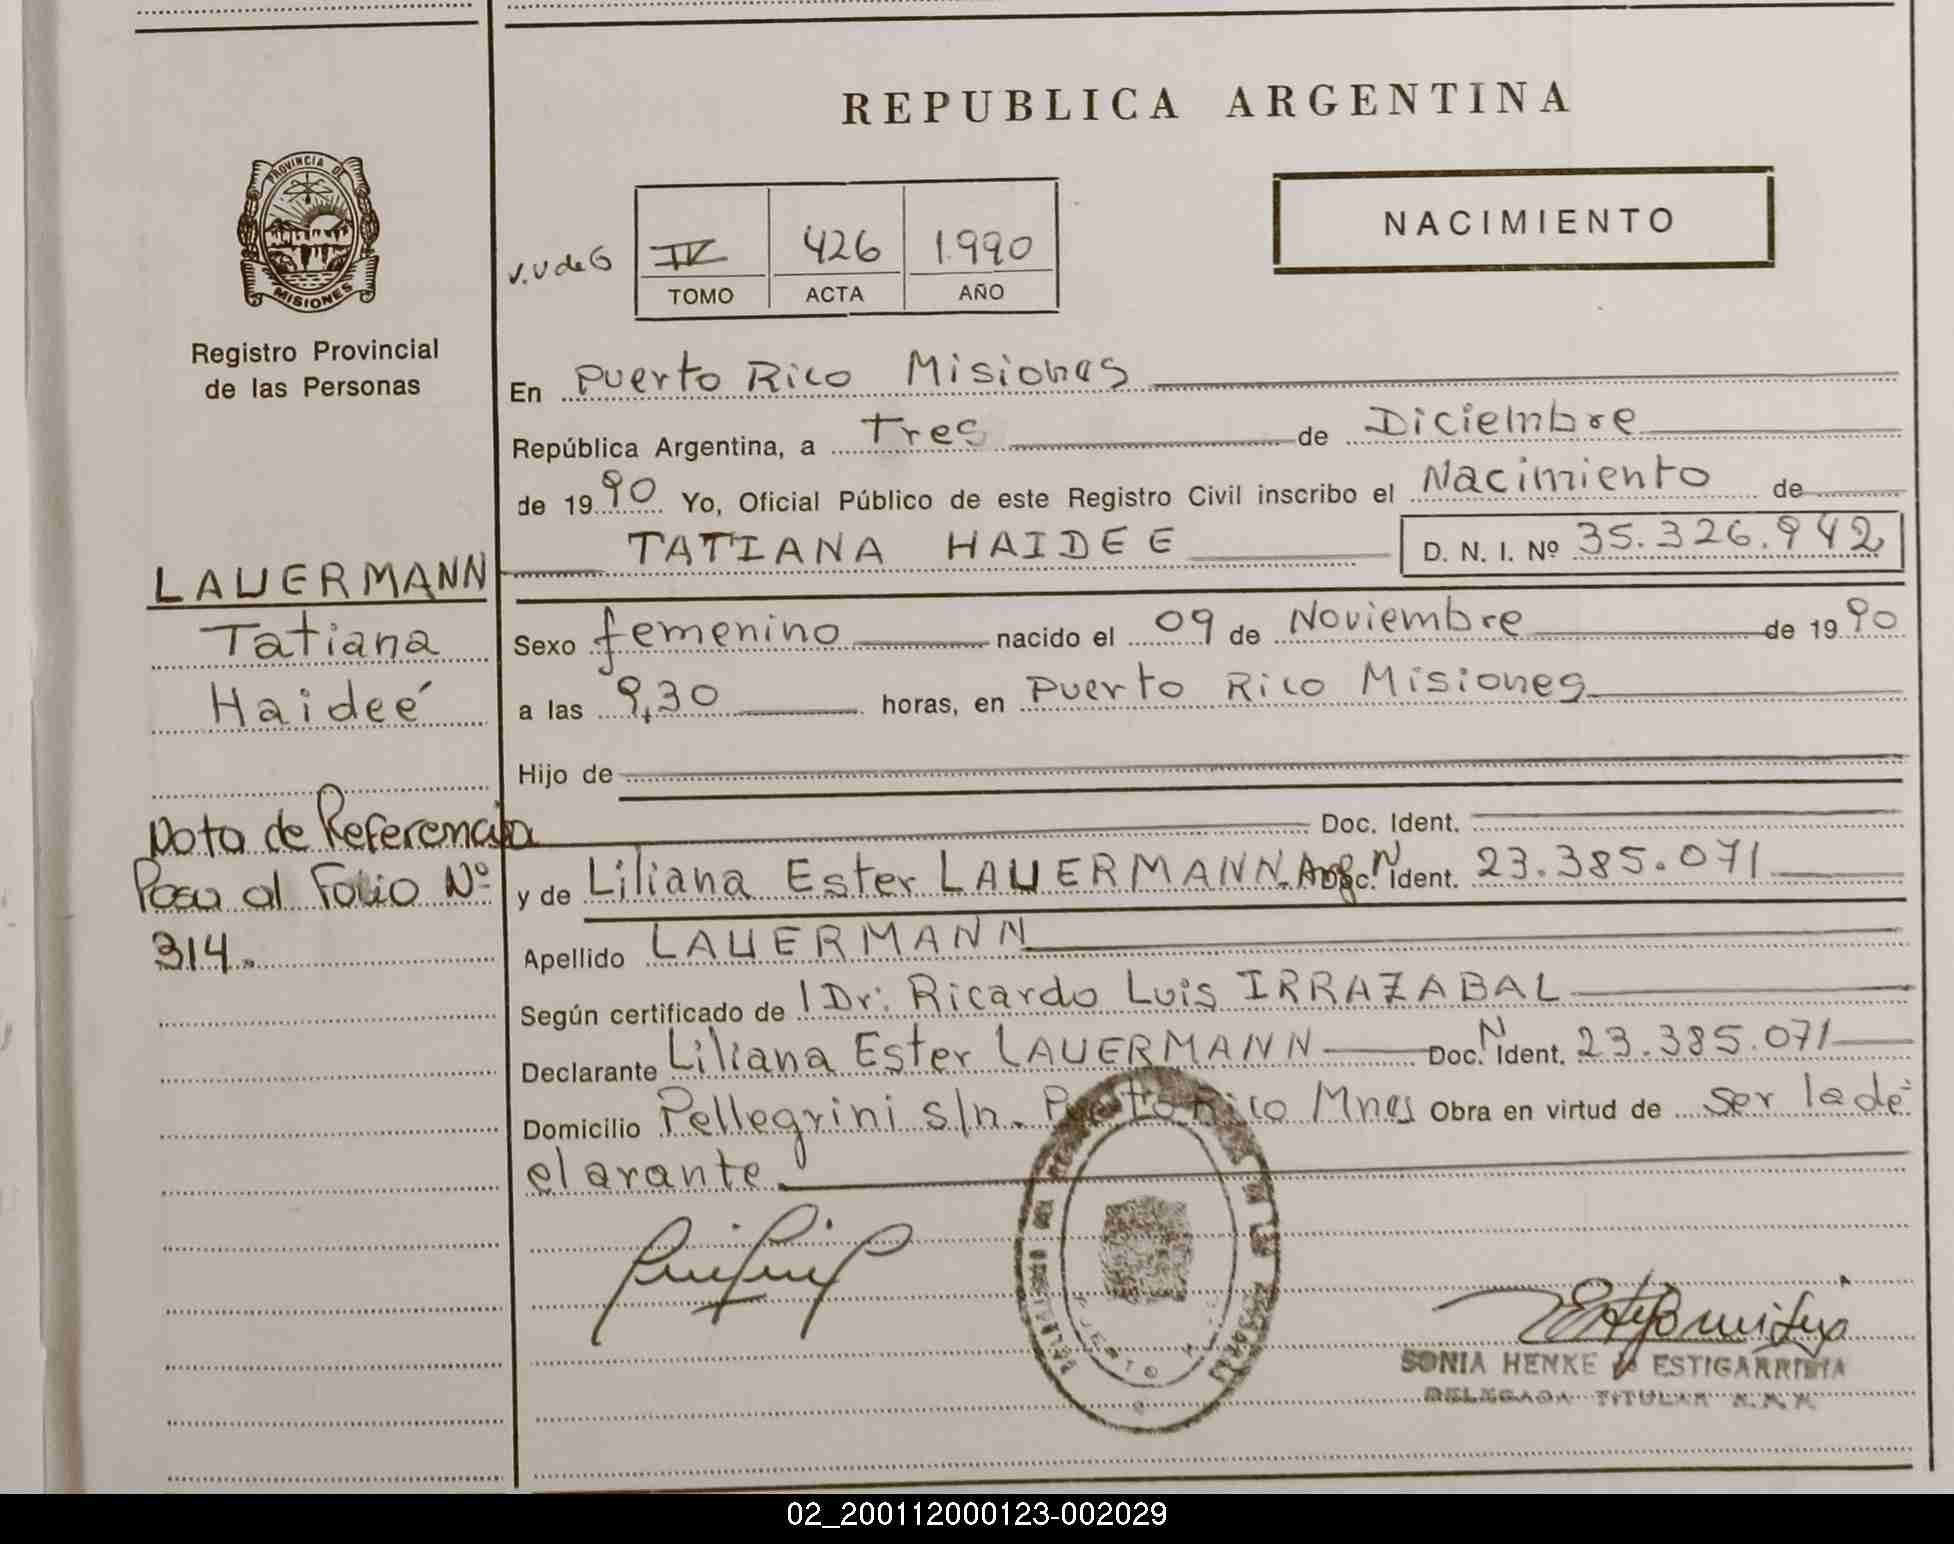 REPUBLICA ARGENTINA
PROVINCIA DE
MISIONES
Registro Provincial
de las Personas
NACIMIENTO
v.v de G
IV 426 1.990
TOMO ACTA AÑO
En Puerto Rico Misiones
República Argentina, a Tres de Diciembre
de 1990 Yo, Oficial Público de este Registro Civil inscribo el Nacimiento de
TATIANA HAIDEE D. N. I. Nº 35.326.942
LAUERMANN
Tatiana
Haideé
Sexo femenino nacido el 09 de Noviembre de 1990
a las 9,30 horas, en Puerto Rico Misiones
Hijo de
Doc. Ident.
Nota de Referencia
Pasa al Folio Nº
314.
y de Liliana Ester LAUERMANN. Arg. Doc. N Ident. 23.385.071
Apellido LAUERMANN
Según certificado de Dr: Ricardo Luis IRRAZABAL
Declarante Liliana Ester LAUERMANN Doc. N Ident. 23.385.071
Domicilio Pellegrini s/n. Puerto Rico Mnes Obra en virtud de ser la de
clarante
SONIA HENKE de ESTIGARRIBIA
DELEGADA TITULAR
02_200112000123-002029